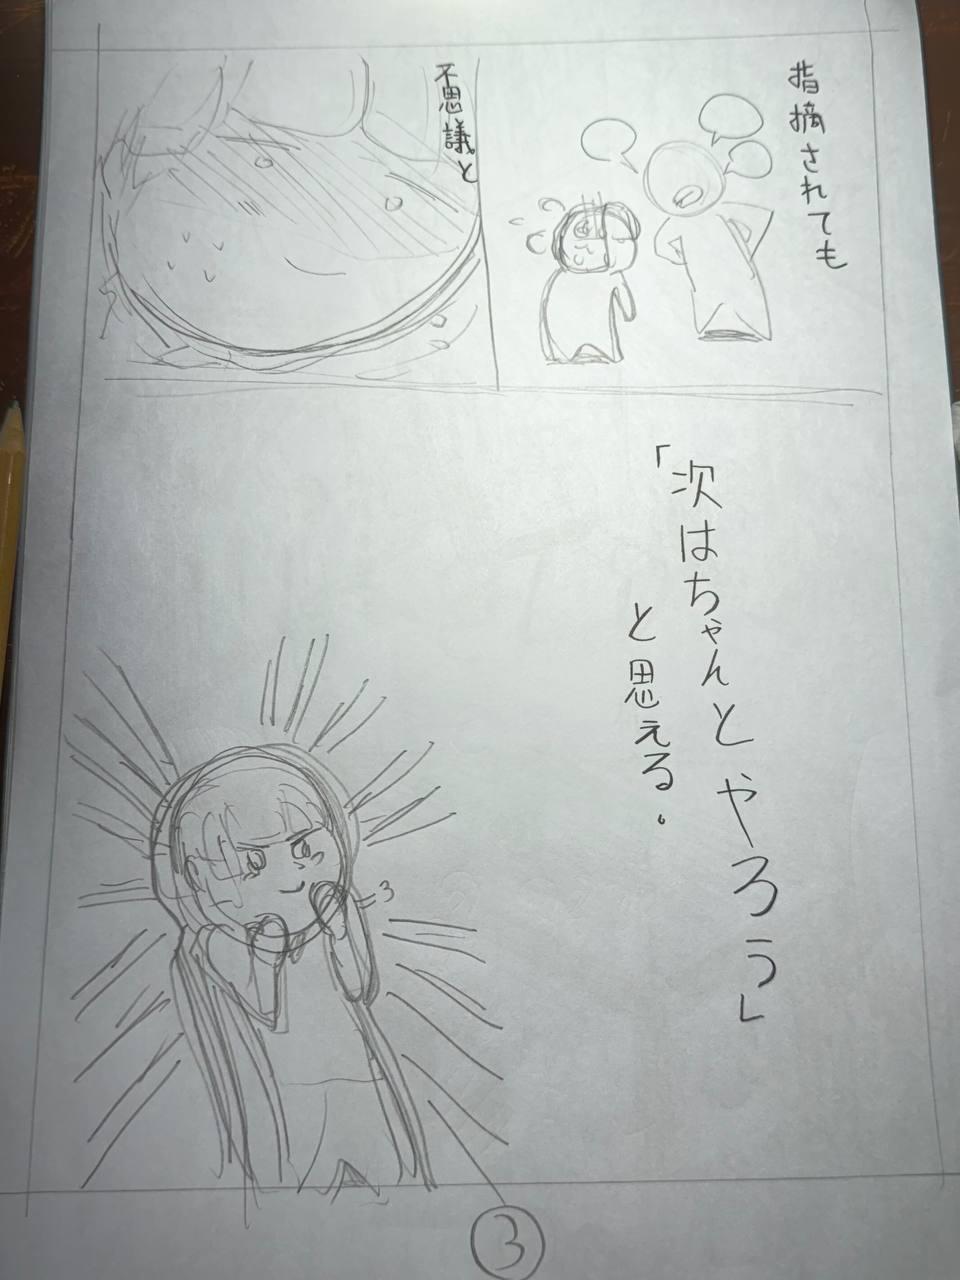 指摘されても
不思議と
「次はちゃんとやろう」
と思える。
3